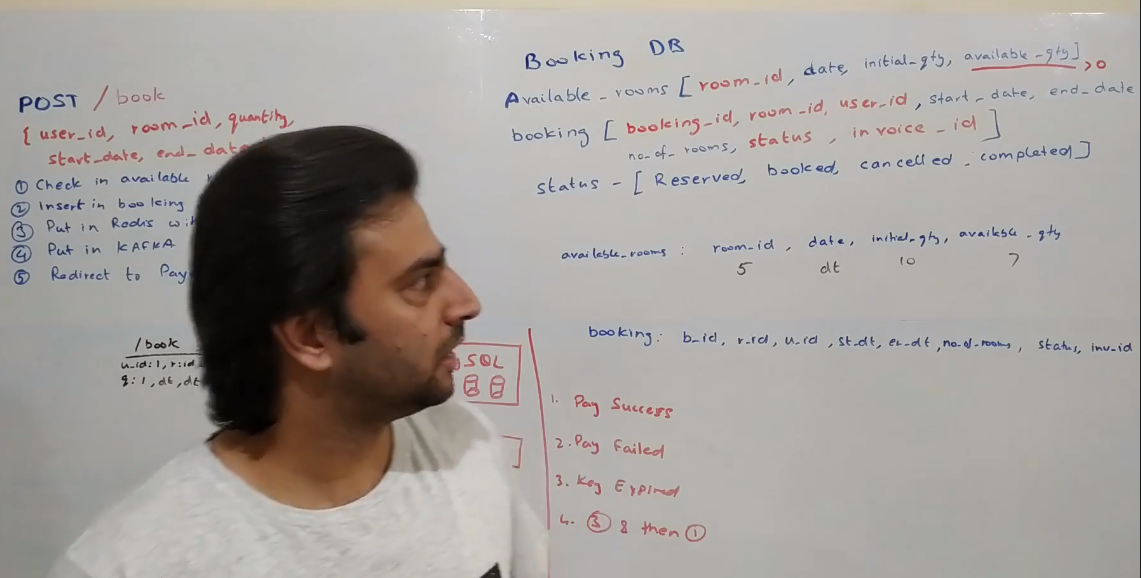 POST /book
{ user_id, room_id, quantity,
start_date, end_date
① Check in available
② Insert in booking
③ Put in Redis
④ Put in KAFKA
⑤ Redirect to Pay
/book
u_id:1, r:id
q:1, dt, dt
SQL
Booking DB
Available_rooms [room_id, date, initial_qty, available_qty] >0
booking [booking_id, room_id, user_id, start_date, end_date
no_of_rooms, status, invoice_id]
status - [Reserved, booked, cancelled, completed]
available_rooms : room_id, date, initial_qty, available_qty
5 dt 10 7
booking: b_id, r_id, u_id, st_dt, en_dt, no_of_rooms, status, inv_id
1. Pay Success
2. Pay Failed
3. Key Expired
4. ③ & then ①